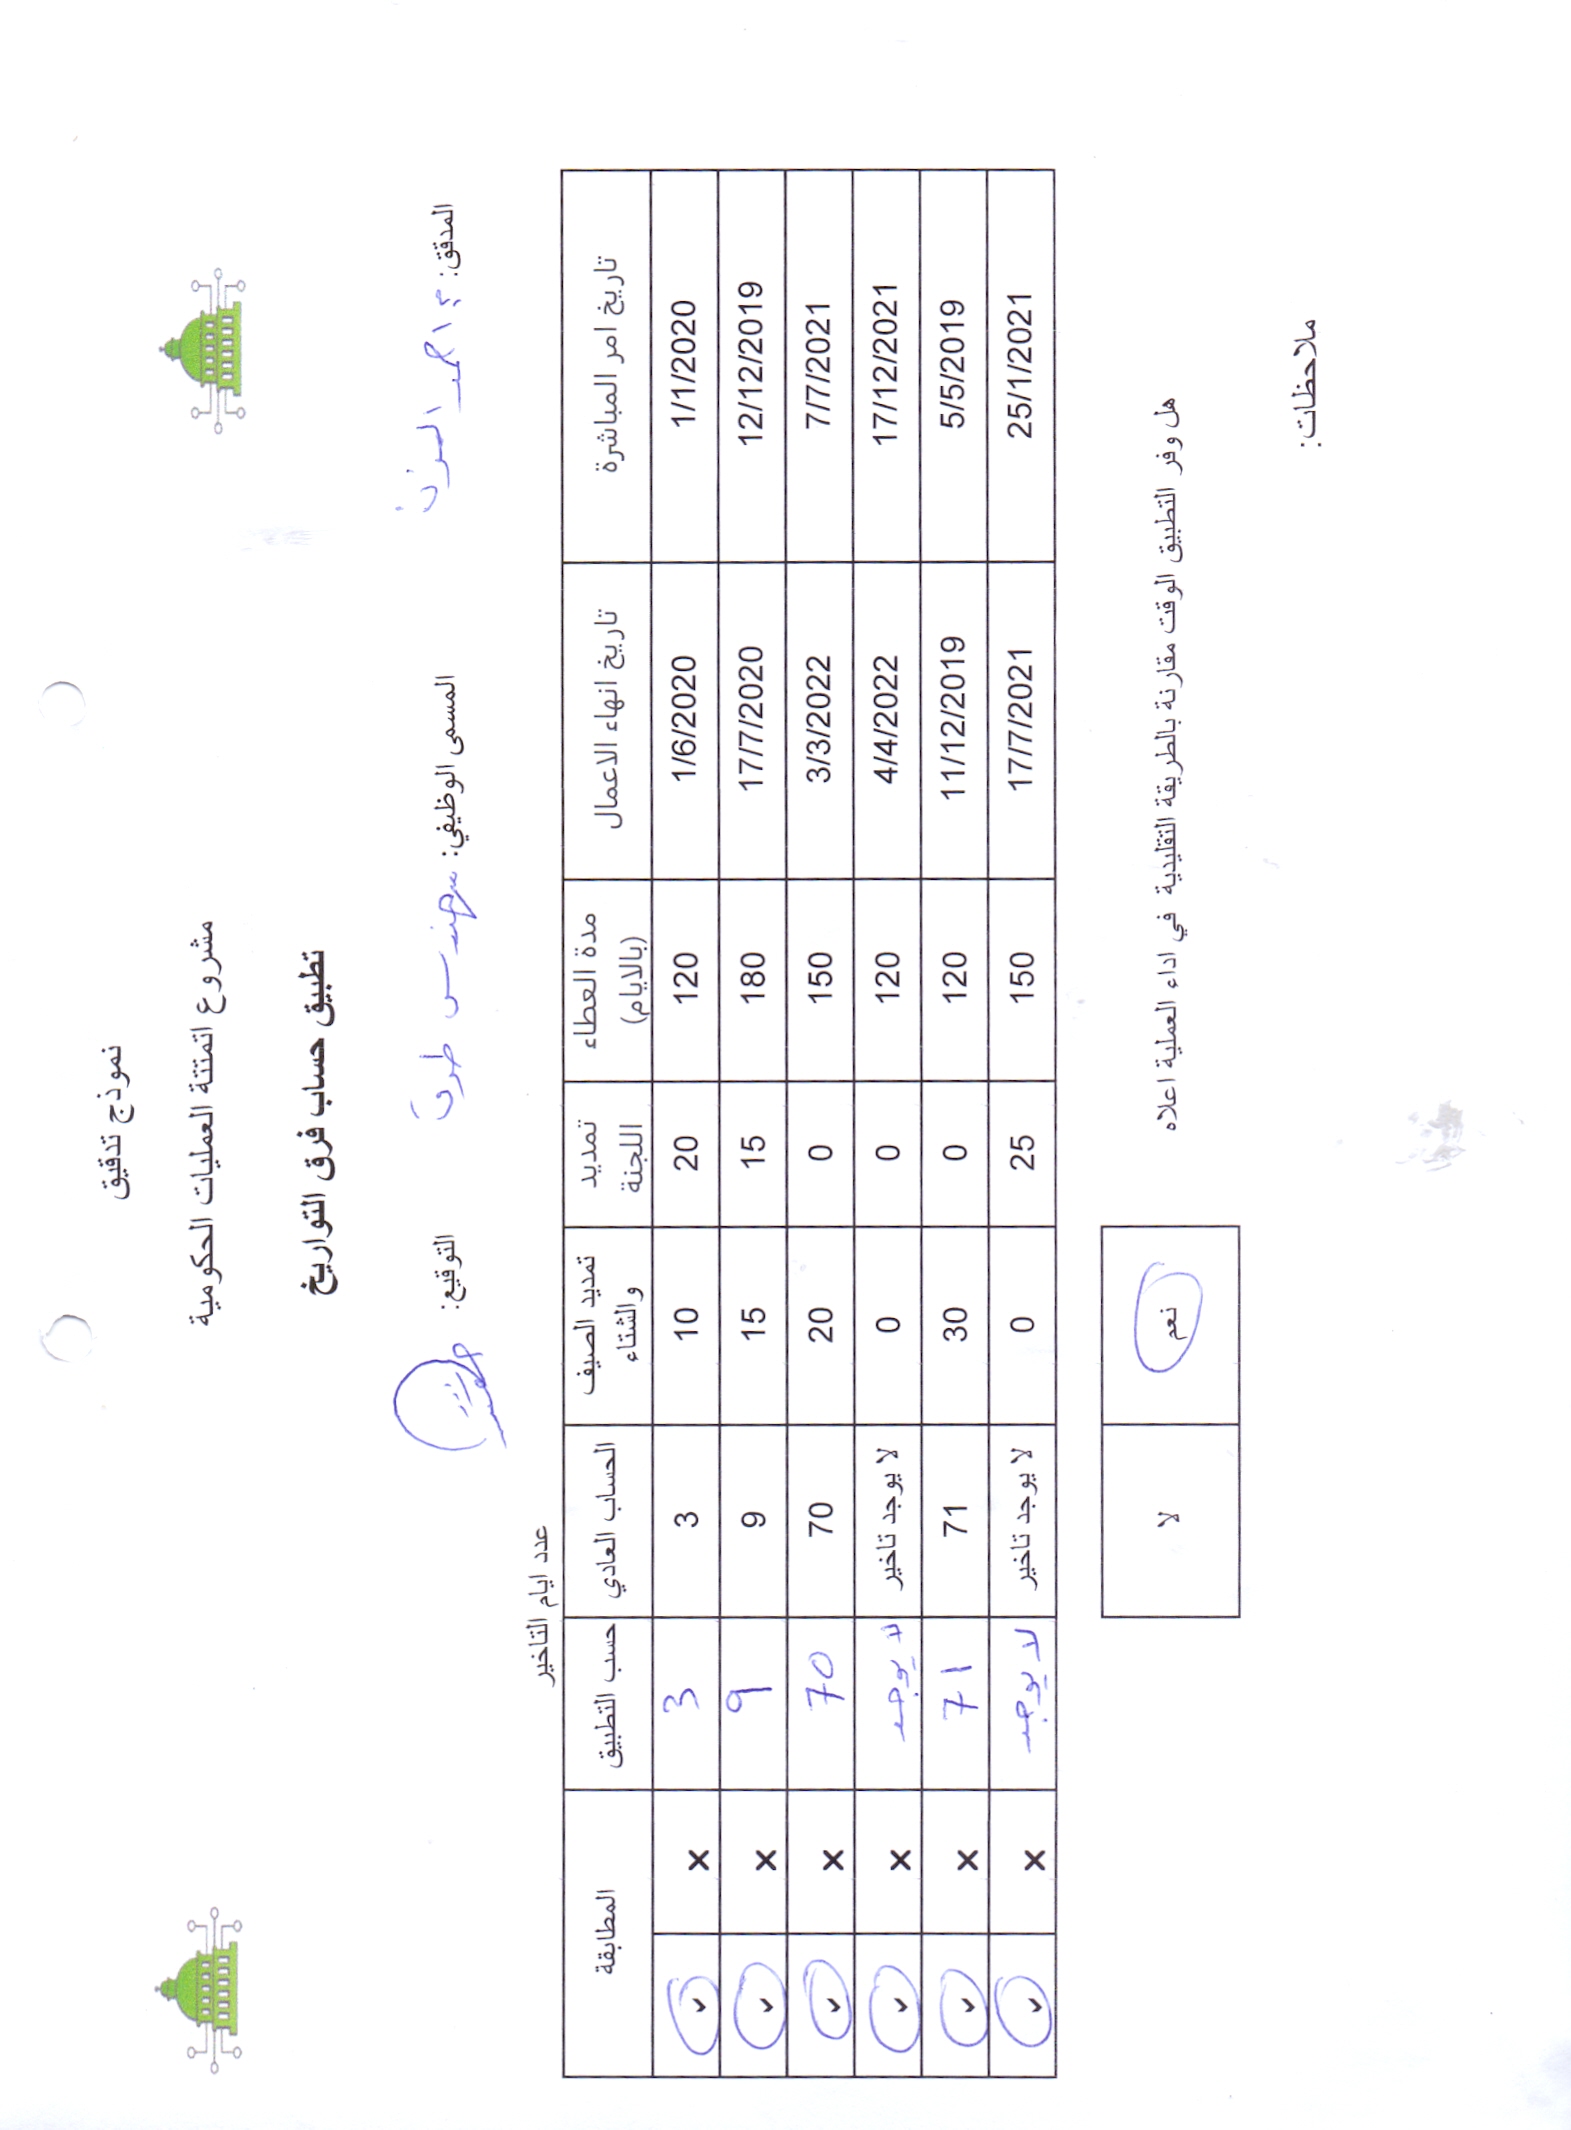 نموذج تدقيق
مشروع اتمتتة العمليات الحكومية
تطبيق حساب فرق التواريخ
المدقق: احمد المسمى الوظيفي: مهندس طرق التوقيع:
عدد ايام التاخير
تاريخ امر المباشرة تاريخ انهاء الاعمال مدة العطاء (بالايام) تمديد اللجنة تمديد الصيف والشتاء الحساب العادي حسب التطبيق المطابقة
1/1/2020 1/6/2020 120 20 10 3 3 × ✓
12/12/2019 17/7/2020 180 15 15 9 9 × ✓
7/7/2021 3/3/2022 150 0 20 70 70 × ✓
17/12/2021 4/4/2022 120 0 0 لا يوجد تاخير لا يوجد × ✓
5/5/2019 11/12/2019 120 0 30 71 71 × ✓
25/1/2021 17/7/2021 150 25 0 لا يوجد تاخير لا يوجد × ✓
هل وفر التطبيق الوقت مقارنة بالطريقة التقليدية في اداء العملية اعلاه
نعم لا
ملاحظات: